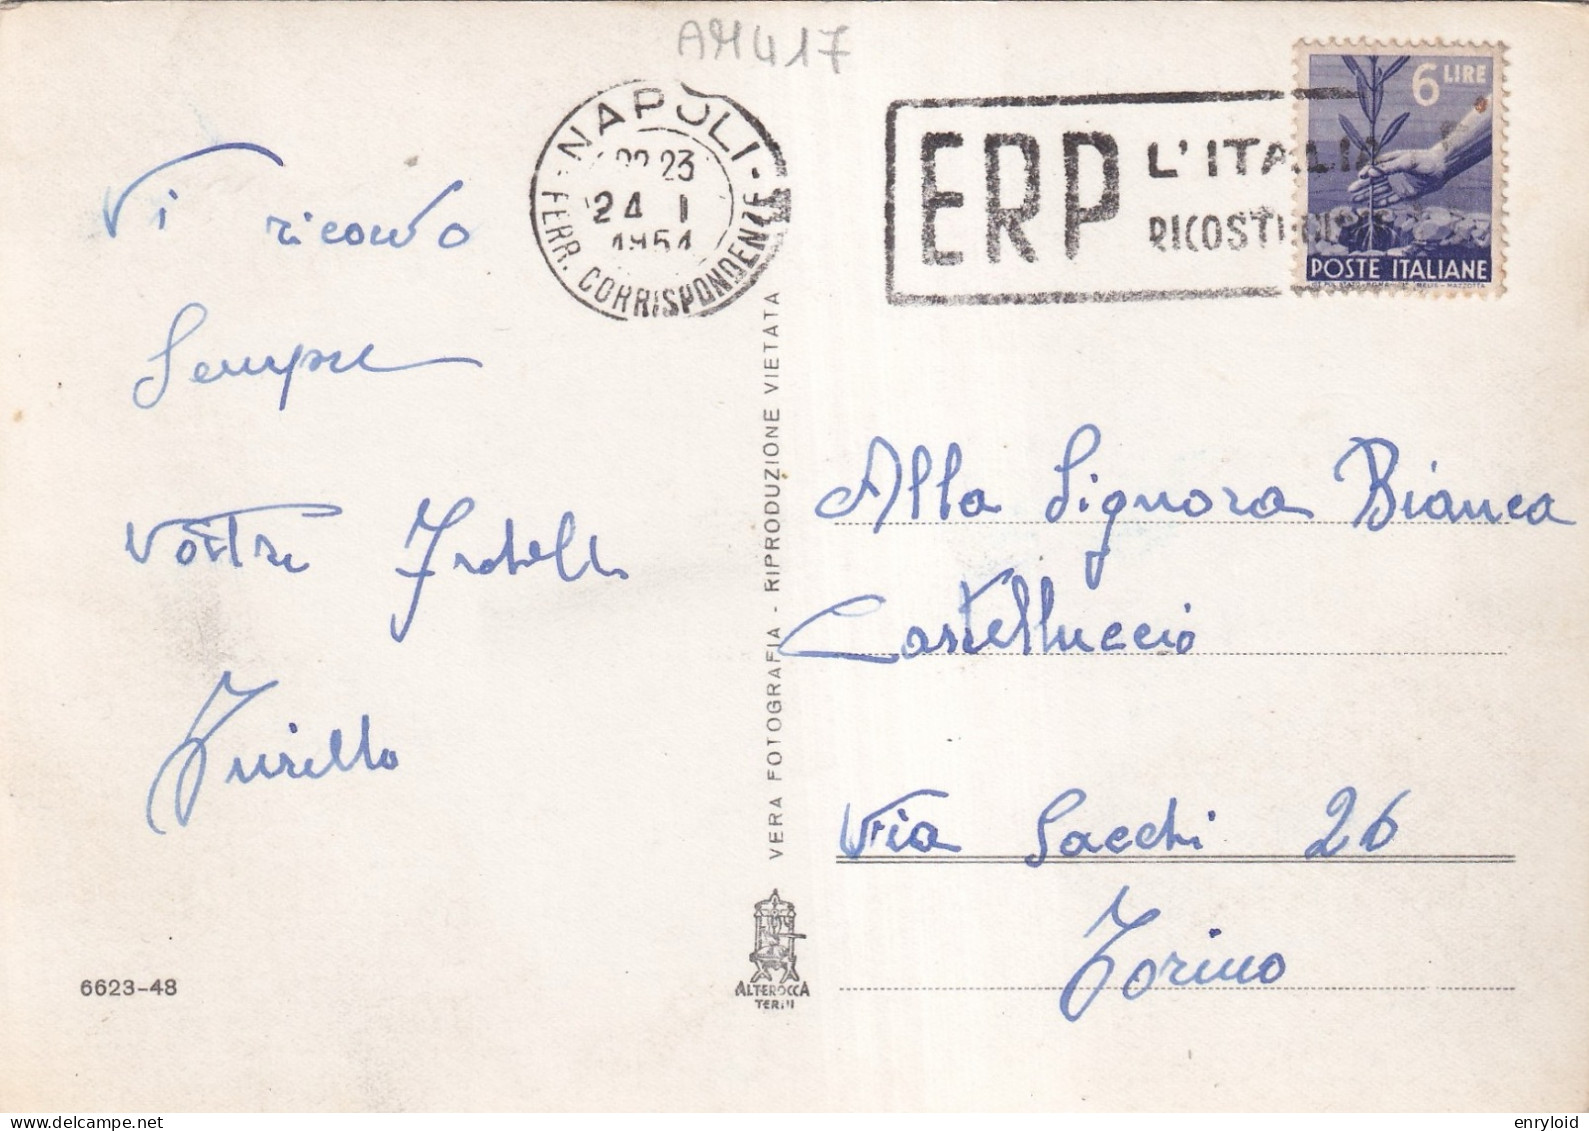 AM417
NAPOLI
22-23
24 1
1951
FERR. CORRISPONDENZE
ERP L'ITALIA
6 LIRE
POSTE ITALIANE
Vi ricordo
Sempre
Vostro Fratello
Turillo
VERA FOTOGRAFIA - RIPRODUZIONE VIETATA
Alla Signora Bianca
Castelluccio
Via Sacchi 26
Torino
6623-48
ALTEROCCA
TERNI
enryloid